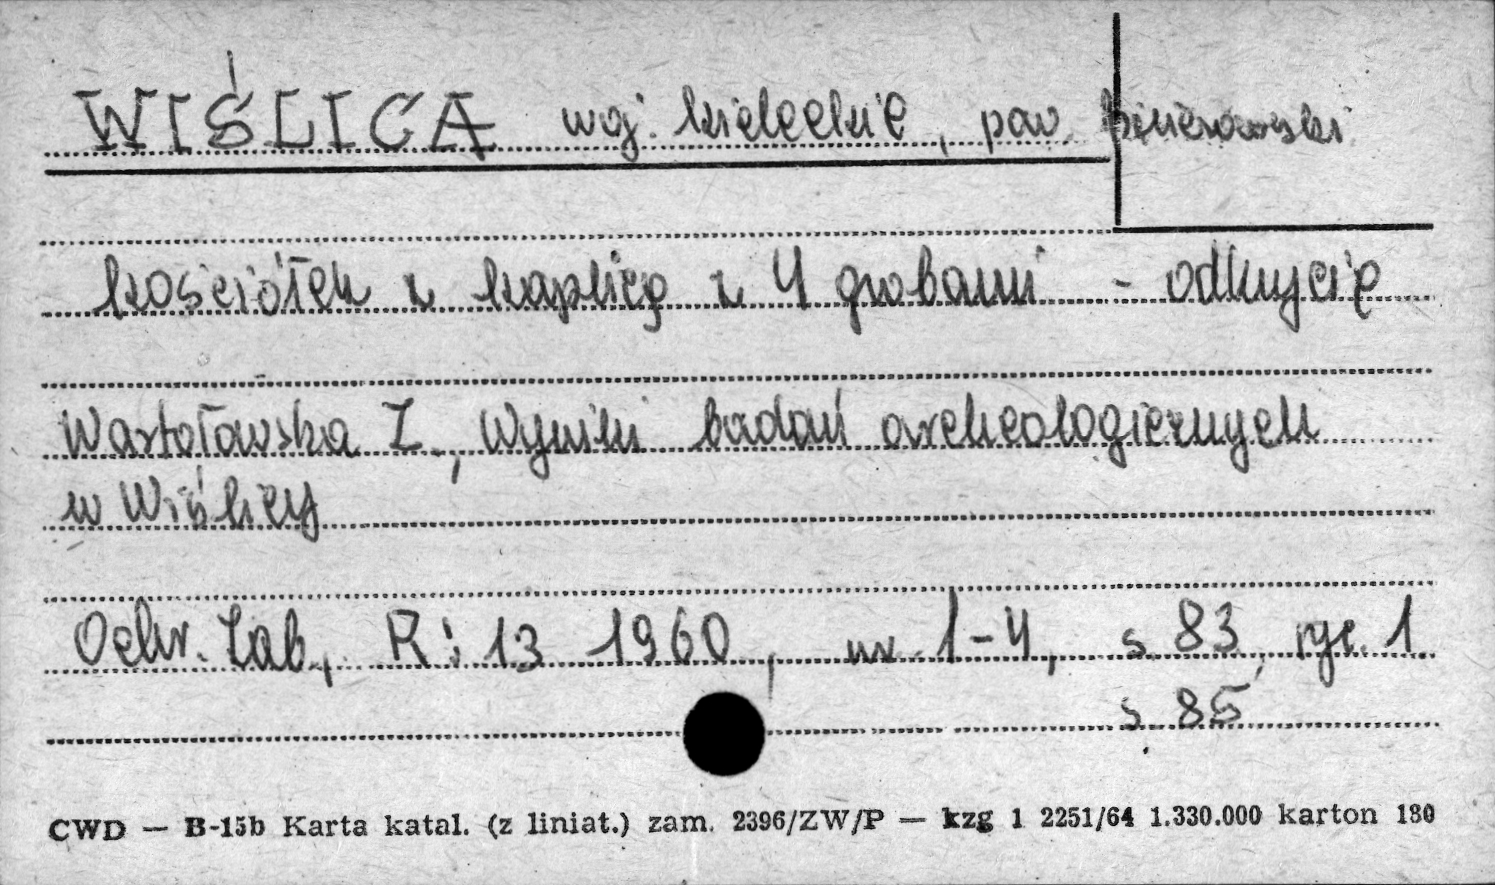 WIŚLICA woj. kieleckie, pow. pińczowski
kościółek z kaplicą z 4 grobami - odkrycie
Wartołowska Z., Wyniki badań archeologicznych
w Wiślicy
Ochr. Zab., R: 13 1960, nr 1-4, s 83, ryc. 1
s 85
CWD — B-15b Karta katal. (z liniat.) zam. 2396/ZW/P — kzg 1 2251/64 1.330.000 karton 180